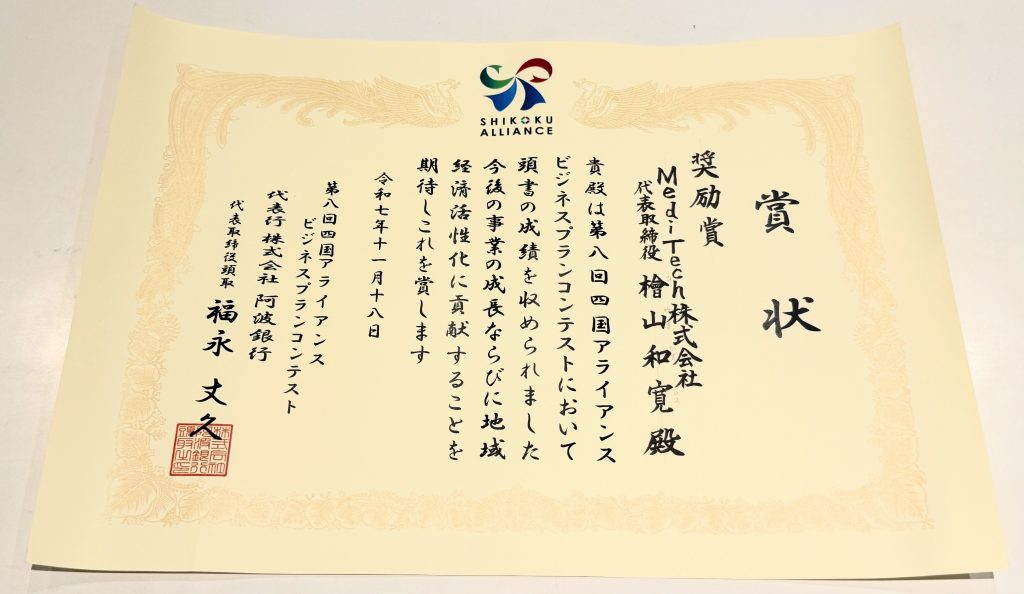 SHIKOKU
ALLIANCE
賞状
奨励賞
MediTech株式会社
代表取締役 檜山和寛殿
貴殿は第八回四国アライアンス
ビジネスプランコンテストにおいて
頭書の成績を収められました
今後の事業の成長ならびに地域
経済活性化に貢献することを
期待しこれを賞します
令和七年十一月十八日
第八回四国アライアンス
ビジネスプランコンテスト
代表行 株式会社 阿波銀行
代表取締役頭取 福永丈久
株式会社阿波銀行頭取之印